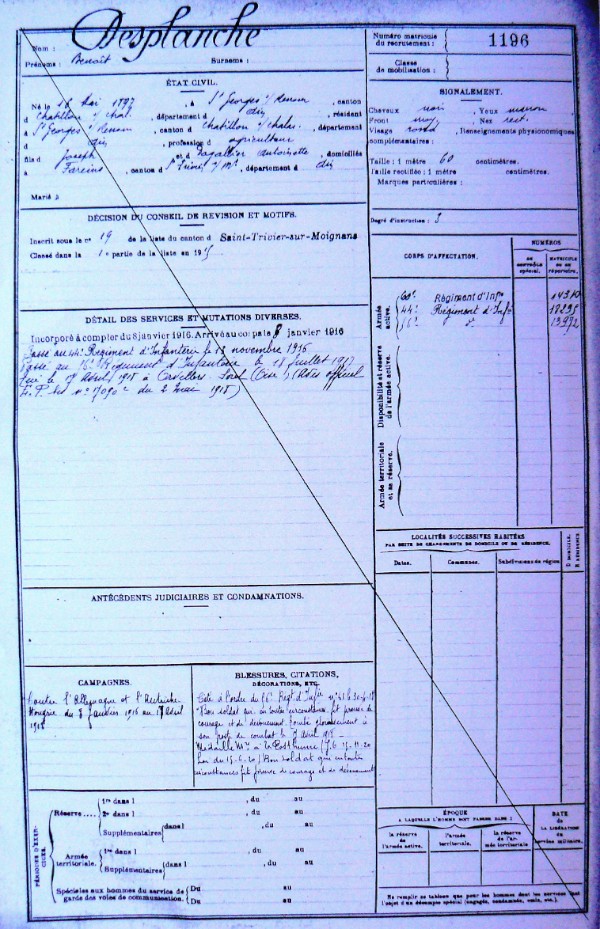 Nom : Desplanche
Prénoms : Benoît Surnoms :
Numéro matricule
du recrutement :
1196
Classe
de mobilisation :
ÉTAT CIVIL.
Né le Mai 1897, à St Georges s/ Renon, canton
d Chatillon s/ Chal., département d dit, résidant
à St Georges s/ Renon, canton d Chatillon s/ Chalar., département
d dit, profession d agriculteur
fils d Joseph et d Antoinette, domiciliés
à Fareins, canton d St, département d dit
Marié à
SIGNALEMENT.
Cheveux noir, Yeux marron
Front moy, Nez rect.
Visage rond, Renseignements physionomiques
complémentaires :
Taille : 1 mètre 60 centimètres.
Taille rectifiée : 1 mètre centimètres.
Marques particulières :
Degré d'instruction : 3
DÉCISION DU CONSEIL DE REVISION ET MOTIFS.
Inscrit sous le n° 19 de la liste du canton d Saint-Trivier-sur-Moignans
Classé dans la 1e partie de la liste en 19
DÉTAIL DES SERVICES ET MUTATIONS DIVERSES.
Incorporé à compter du 8 janvier 1916. Arrivé au corps le 8 janvier 1916
Passé au 44e Régiment d'Infanterie le 18 novembre 1916
Passé au Régiment d'Infanterie le 18 Juillet 1917
Tué le 9 Avril 1918 à Orvillers Sorel (Oise) (Avis officiel
du 2 mai 1918)
CORPS D'AFFECTATION.
NUMÉROS
AU CONTRÔLE SPÉCIAL.
MATRICULE OU AU RÉPERTOIRE.
Armée active.
60e Régiment d'Infie
44e Régiment d'Infie
13972
Disponibilité et réserve de l'armée active.
Armée territoriale et sa réserve.
LOCALITÉS SUCCESSIVES HABITÉES
PAR SUITE DE CHANGEMENTS DE DOMICILE OU DE RÉSIDENCE.
Dates. Communes. Subdivisions de région. D. DOMICILE. R. RÉSIDENCE.
ANTÉCÉDENTS JUDICIAIRES ET CONDAMNATIONS.
CAMPAGNES.
Contre l'Allemagne et l'Autriche
Hongrie du 8 Janvier 1916 au Avril
1918
BLESSURES, CITATIONS,
DÉCORATIONS, ETC.
Cité à l'ordre du Régt d'Infie
"Bon soldat qui en toutes circonstances fit preuve de
courage et de dévouement. Tombé glorieusement à
son poste de combat le 9 Avril 1918. –
Médaille Mre à titre Posthume (J.O.
) Bon soldat qui en toutes
circonstances fit preuve de courage et de dévouement
PÉRIODES D'EXERCICES.
Réserve
1re dans l , du au
2e dans l , du au
Supplémentaires dans l , du au
, du au
Armée territoriale.
1re dans l , du au
Supplémentaires dans l , du au
, du au
Spéciales aux hommes du service de
garde des voies de communication.
Du au
Du au
ÉPOQUE
À LAQUELLE L'HOMME DOIT PASSER DANS :
la réserve de l'armée active.
l'armée territoriale.
la réserve de l'armée territoriale.
DATE
de
LA LIBÉRATION
du service militaire.
Ne remplir ce tableau que pour les hommes dont les services font
l'objet d'un décompte spécial (engagés, condamnés, omis, etc.).